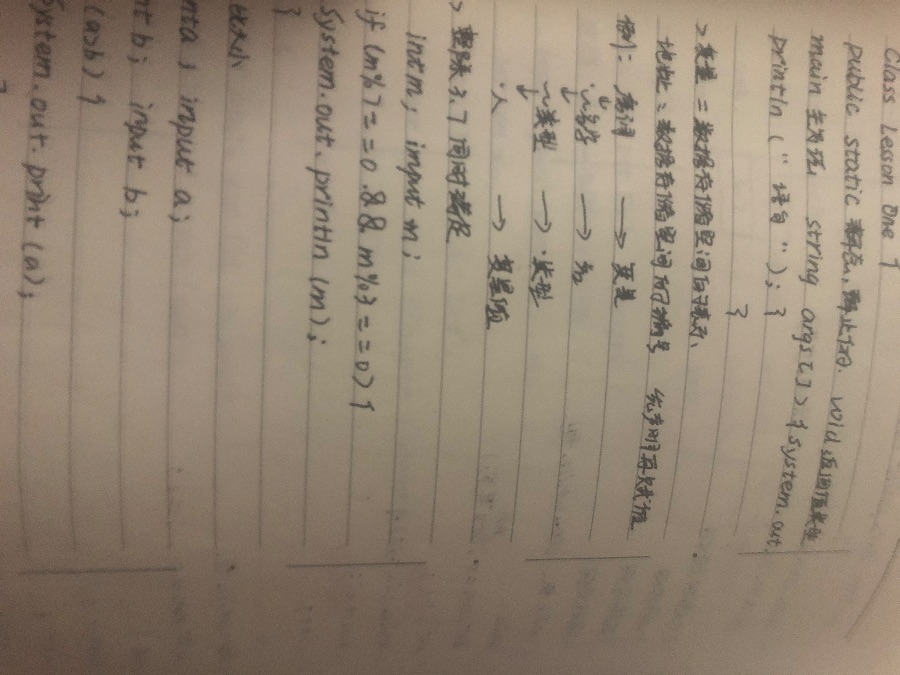 Class Lesson One {
public static 静态, 静止不动. void 返回值类型
main 主方法, string args[] > { system.out
println ( " 语句 " ); }
}
> 变量 = 数据存储空间的表示、
地址 = 数据存储空间的编号 先声明再赋值
例: 房间 → 变量
↓
~名字 → 名
↓
~类型 → 类型
↓
人 → 变量值
> 整除 3.7 同时整除
int m; input m;
if (m%7==0 && m%3==0) {
System.out.println (m);
}
比大小
nt a; input a;
nt b; input b;
(a>b) {
ystem.out.print (a);